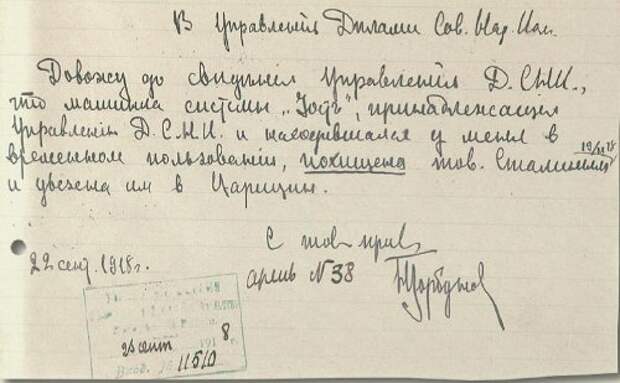 В Управленія Дѣлами Сов. Нар. Ком.
Довожу до свѣдѣнія Управленія Д.С.Н.К.,
что машинка системы „Іостъ", принадлежащая
Управленію Д.С.Н.К. и находившаяся у меня в
временном пользованіи, похищена тов. Сталиным
и увезена им в Царицын.
С тов. прив.
22 сент. 1918 г.
архив N 38
Горбунов
25 сент 1918 г.
Вход. 11510